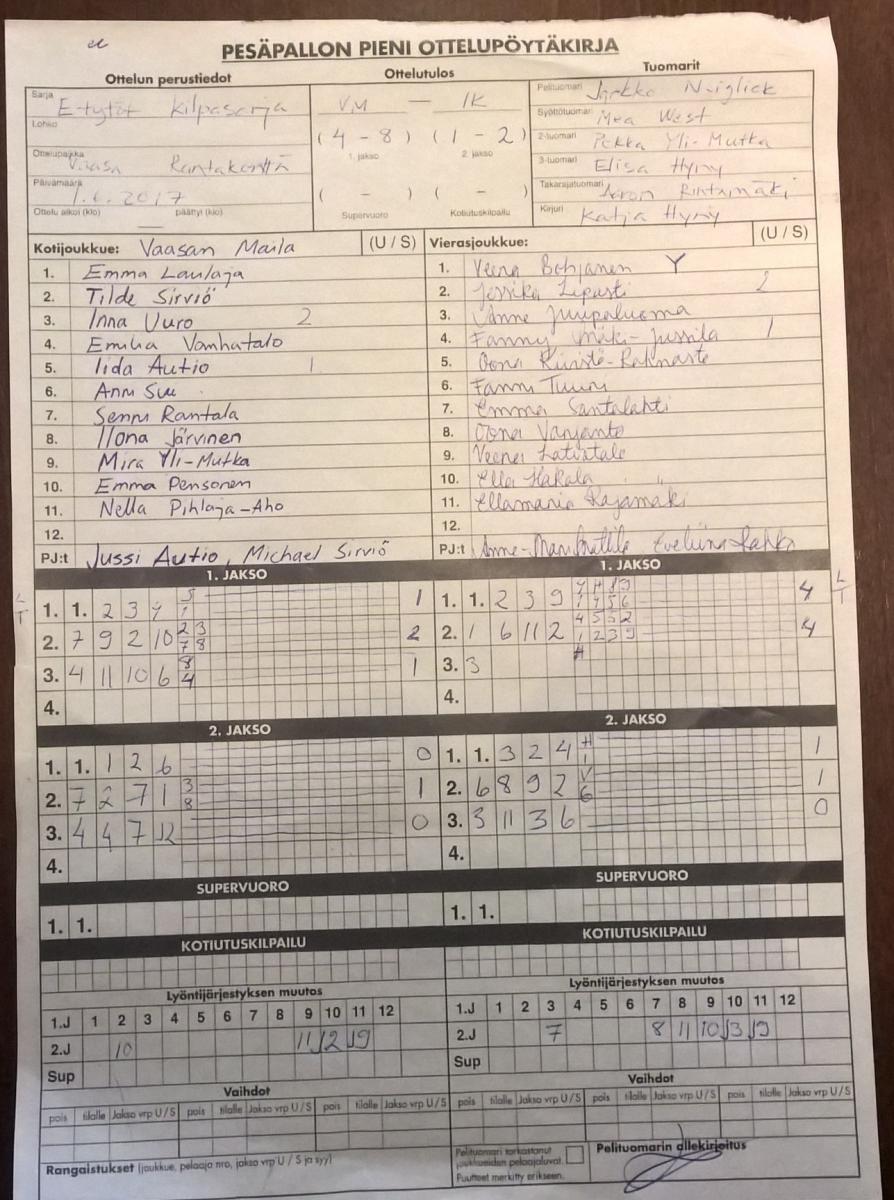 PESÄPALLON PIENI OTTELUPÖYTÄKIRJA
Ottelun perustiedot
Sarja E-tytöt kilpasarja
Lohko
Ottelupaikka Vaasa Rantakenttä
Päivämäärä 1.6.2017
Ottelu alkoi (klo) päättyi (klo)
Ottelutulos
VM — IK
(4 - 8) (1 - 2)
1. jakso 2. jakso
( - ) ( - )
Supervuoro Kotiutuskilpailu
Tuomarit
Pelituomari Jarkko Niiglick
Syöttötuomari Mea West
2-tuomari Pekka Yli-Mutka
3-tuomari Elisa Hyny
Takarajatuomari Aaron Rintamäki
Kirjuri Katja Hyny
Kotijoukkue: Vaasan Maila (U / S)
1. Emma Laulaja
2. Tilde Sirviö
3. Inna Uuro 2
4. Emilia Vanhatalo
5. Iida Autio 1
6. Anni Suu
7. Senni Rantala
8. Ilona Järvinen
9. Mira Yli-Mutka
10. Emma Pensonen
11. Nella Pihlaja-Aho
12.
PJ:t Jussi Autio, Michael Sirviö
Vierasjoukkue: (U / S)
1. Veera Bohjanen Y
2. Jessika Lepasti 2
3. Anne Juupaluoma
4. Fanny Mäki-Jussila 1
5. Oona
6. Fanni Tuuri
7. Emma Santalahti
8. Oona Varjanto
9. Veera Latvatalo
10. Ella Hakala
11. Ellamaria Rajamäki
12.
PJ:t
1. JAKSO
1. 1. 2 3 4 5 1 1
2. 7 9 2 10 2 3 7 8 2
3. 4 11 10 6 8 4 1
4.
2. JAKSO
1. 1. 1 2 6 0
2. 7 2 7 1 3 8 1
3. 4 4 7 12 0
4.
SUPERVUORO
1. 1.
KOTIUTUSKILPAILU
Lyöntijärjestyksen muutos
1.J 1 2 3 4 5 6 7 8 9 10 11 12
2.J 10 11 12 19
Sup
Vaihdot
pois tilalle Jakso vrp U / S pois tilalle Jakso vrp U / S pois tilalle Jakso vrp U / S
Rangaistukset (joukkue, pelaaja nro, jakso vrp U / S ja syy)
1. JAKSO
1. 1. 2 3 9 4
2. 1 6 11 2 4
3. 3
4.
2. JAKSO
1. 1. 3 2 4 H 1 1
2. 6 8 9 2 V 6 1
3. 3 11 3 6 0
4.
SUPERVUORO
1. 1.
KOTIUTUSKILPAILU
Lyöntijärjestyksen muutos
1.J 1 2 3 4 5 6 7 8 9 10 11 12
2.J 7 8 11 10 13 19
Sup
Vaihdot
pois tilalle Jakso vrp U / S pois tilalle Jakso vrp U / S pois tilalle Jakso vrp U / S
Pelituomari tarkastanut
joukkueiden pelaajaluvat.
Puutteet merkitty erikseen.
Pelituomarin allekirjoitus